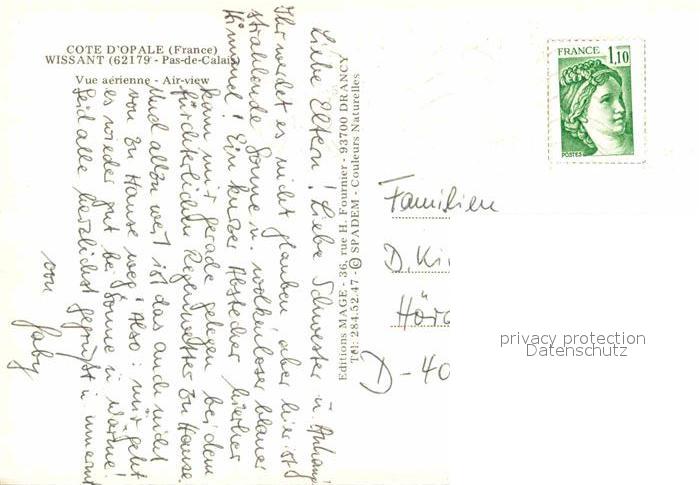 COTE D'OPALE (France)
WISSANT (62179 - Pas-de-Calais)
Vue aérienne - Air-view
Liebe Eltern! Liebe Schwester u. Anhang
Ihr werdet es nicht glauben aber hier ist
strahlende Sonne u. wolkenloser blauer
Himmel! Ein kurzer Abstecher hierher
kam mir gerade gelegen bei dem
fürchterlichen Regenwetter zu Hause.
Und allzu weit ist das auch nicht
von zu Hause weg! Also: mir geht
es wieder gut bei Sonne u. Wärme!
Seid alle herzlichst gegrüßt u. umarmt
von
Gaby
Editions MAGE - 36, rue H. Fournier - 93700 DRANCY
Tél: 284.52.47 - © SPADEM - Couleurs Naturelles
FRANCE 1,10
POSTES
Familien
D. Ki
Hör
D-40
privacy protection
Datenschutz